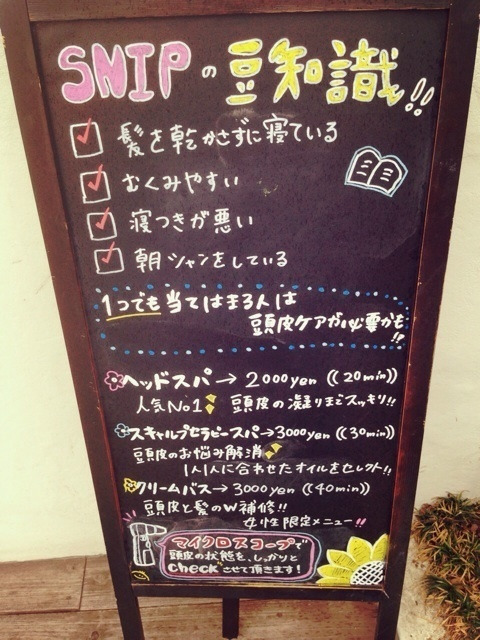 SNIPの豆知識!!
髪を乾かさずに寝ている
むくみやすい
寝つきが悪い
朝シャンをしている
1つでも当てはまる人は
頭皮ケアが必要かも!!
ヘッドスパ→2000yen((20min))
人気No1! 頭皮の凝りまでスッキリ!!
スキャルプセラピースパ→3000yen((30min))
頭皮のお悩み解消
1人1人に合わせたオイルをセレクト!!
クリームバス→3000yen((40min))
頭皮と髪のW補修!!
女性限定メニュー!!
マイクロスコープで
頭皮の状態を、しっかりと
checkさせて頂きます!